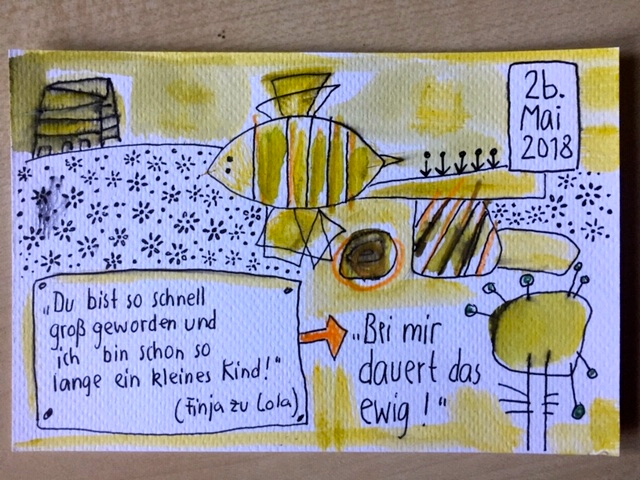 26.
Mai
2018
„Du bist so schnell
groß geworden und
ich bin schon so
lange ein kleines Kind!"
(Finja zu Lola)
„Bei mir
dauert das
ewig!"